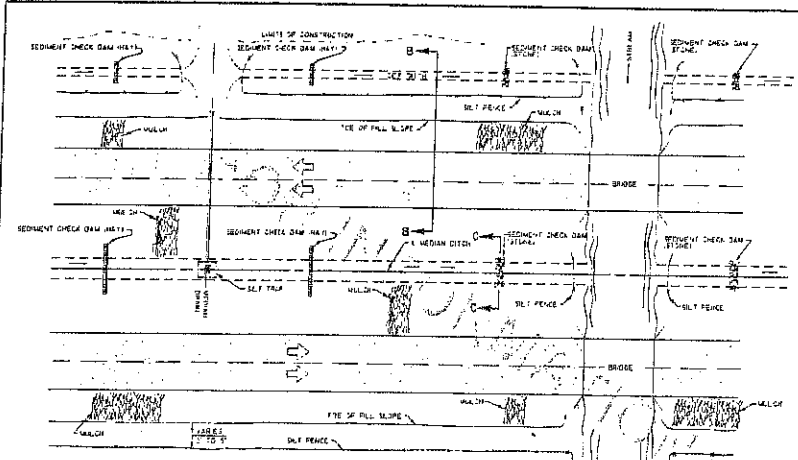 LIMITS OF CONSTRUCTION
SEDIMENT CHECK DAM (HAY)
SEDIMENT CHECK DAM (HAY)
B
SEDIMENT CHECK DAM
(STONE)
STREAM
SEDIMENT CHECK DAM
(STONE)
SILT FENCE
MULCH
TOE OF FILL SLOPE
MULCH
BRIDGE
MULCH
SEDIMENT CHECK DAM (HAY)
SEDIMENT CHECK DAM (HAY)
B
C
SEDIMENT CHECK DAM
(STONE)
SEDIMENT CHECK DAM
(STONE)
MEDIAN DITCH
SILT TRAP
MEDIAN
DRAIN
MULCH
C
SILT FENCE
SILT FENCE
BRIDGE
MULCH
MULCH
TOE OF FILL SLOPE
MULCH
VARIES
SILT FENCE